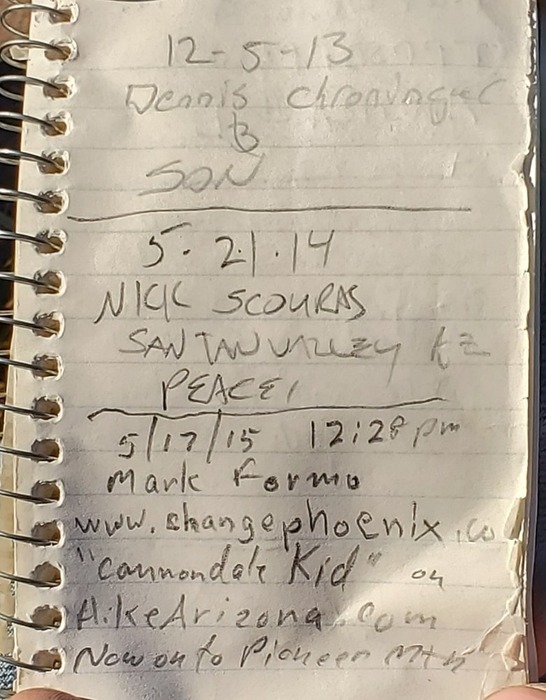 12-5-13
Dennis
&
SON
5.21.14
NICK SCOURAS
SANTAN VALLEY AZ
PEACE!
5/17/15 12:28 pm
Mark Formo
www.changephoenix.co
"Cannondale Kid" on
HikeArizona.com
Now on to Pioneer Mtn